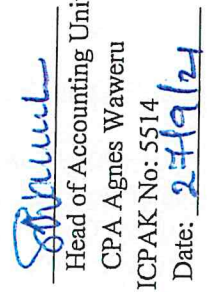 Head of Accounting Uni
CPA Agnes Waweru
ICPAK No: 5514
Date: 27/9/21